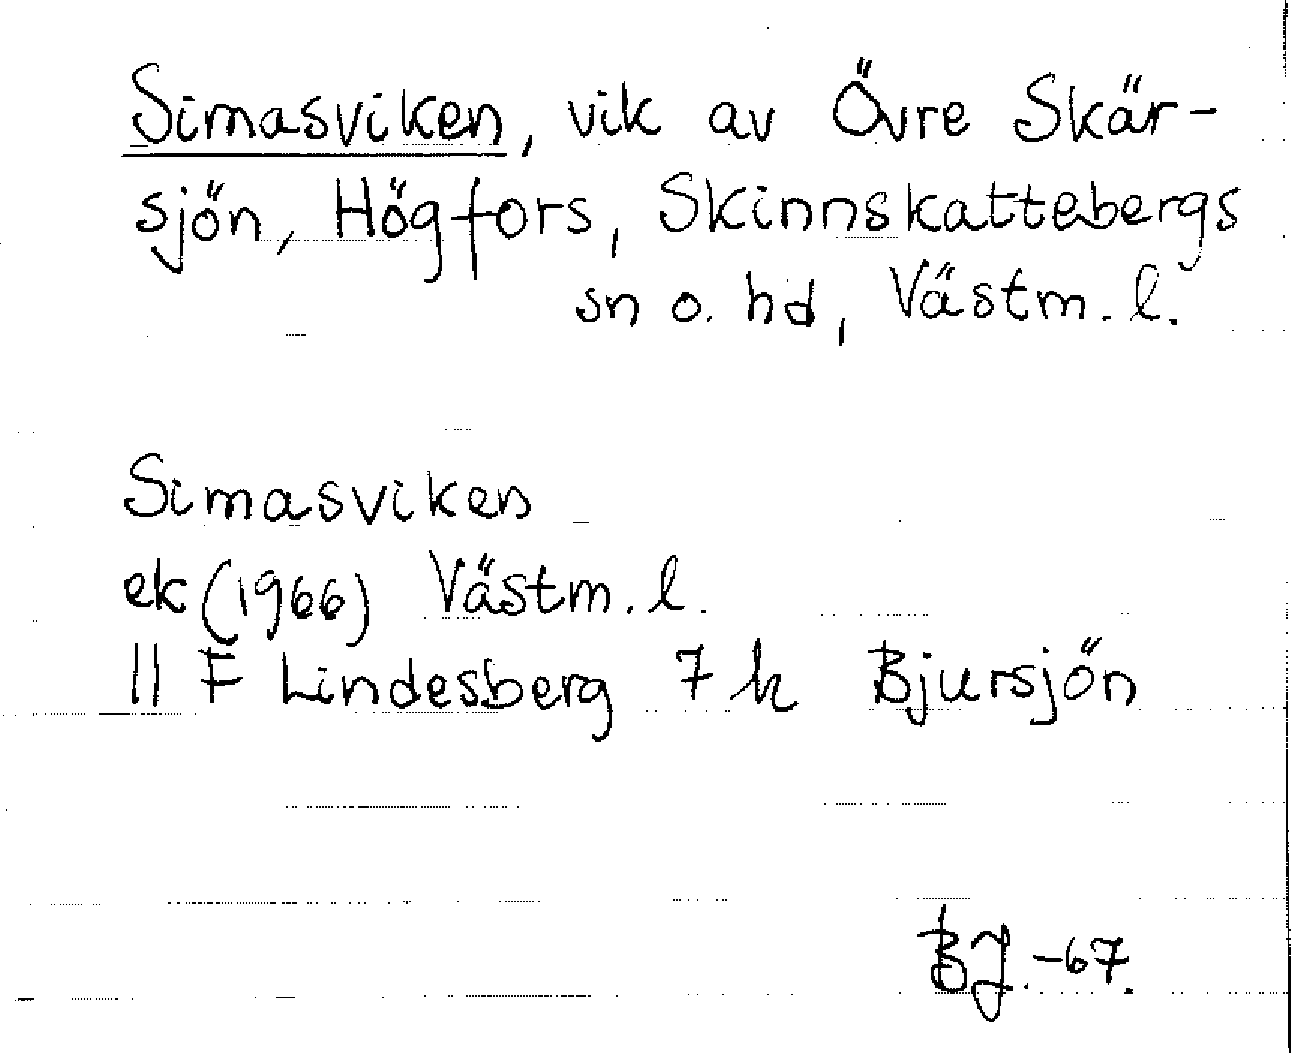 Simasviken, vik av Övre Skär-
sjön, Högfors, Skinnskattebergs
sn o. hd, Västm. l.
Simasviken
ek (1966) Västm. l.
11 F Lindesberg 7 h Bjursjön
BJ. -67.